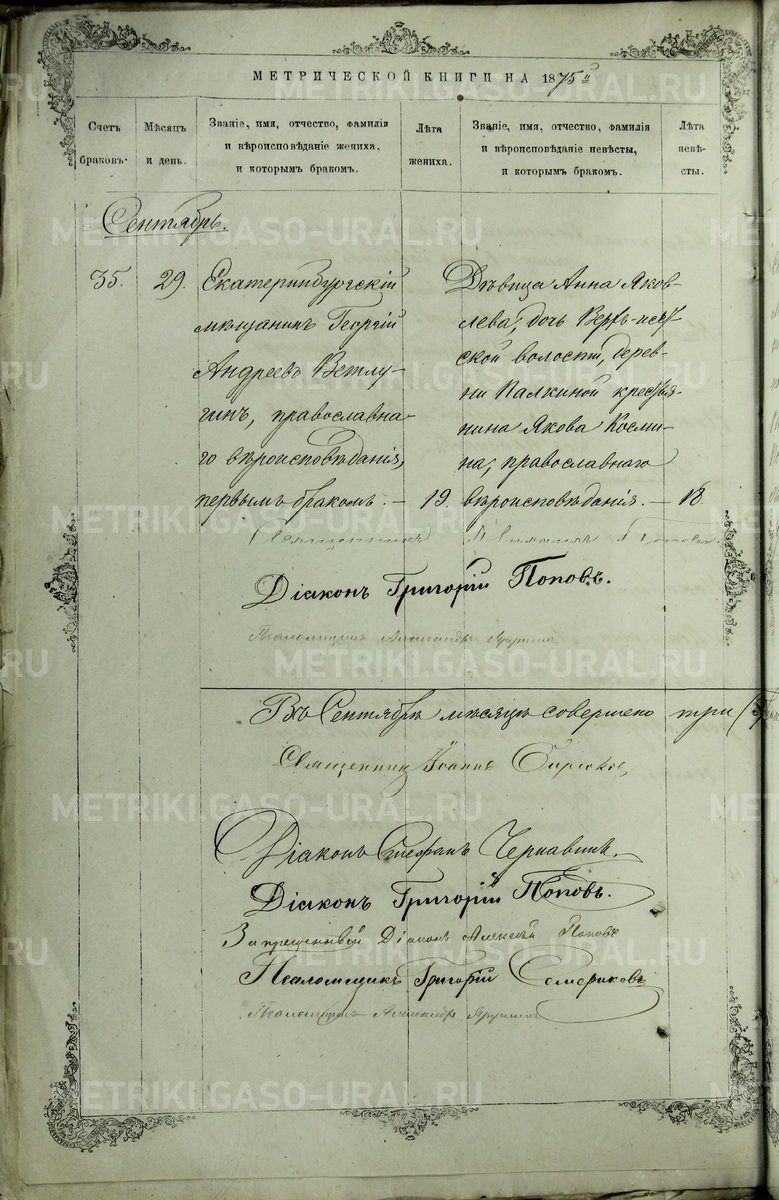 МЕТРИЧЕСКОЙ КНИГИ НА 1875й
Счетъ браковъ.
Мѣсяцъ и день.
Званіе, имя, отчество, фамилія
и вѣроисповѣданіе жениха,
и которымъ бракомъ.
Лѣта
жениха.
Званіе, имя, отчество, фамилія
и вѣроисповѣданіе невѣсты,
и которымъ бракомъ.
Лѣта
невѣ-
сты.
Сентябрь.
35.
29.
Екатеринбургскій
мѣщанинъ Георгій
Андреевъ Ветлу-
гинъ, православна-
го вѣроисповѣданія,
первымъ бракомъ. —
19.
Дѣвица Анна Яков-
лева, дочь Верхъ-исет-
ской волости, дерев-
ни Палкиной крестья-
нина Якова Косми-
на, православнаго
вѣроисповѣданія. —
18.
Священникъ Попов
Діаконъ Григорій Поповъ.
Псаломщикъ Александръ
Въ Сентябрѣ мѣсяцѣ совершено три (3)
Священникъ Іоаннъ
Діаконъ Стефанъ Чернавинъ.
Діаконъ Григорій Поповъ.
Запрещенный Діаконъ Алексѣй Поповъ
Псаломщикъ Григорій Семериковъ
Псаломщикъ Александръ
METRIKI.GASO-URAL.RU